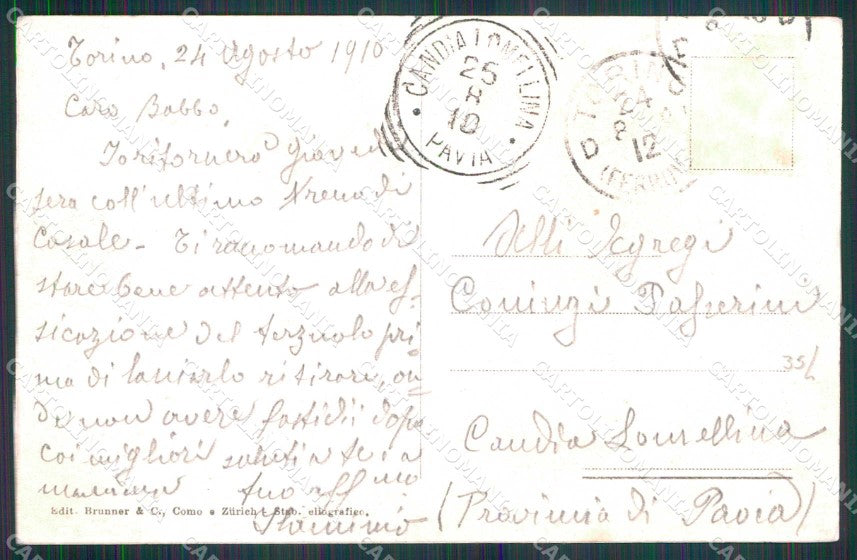 Torino, 24 Agosto 1910
Caro Babbo,
Io ritornerò Giovedì
sera coll'ultimo treno di
Casale - Ti raccomando di
stare bene attento alla es-
sicazione del terzuolo pri
ma di lasciarlo ritirare, on=
de non avere fastidii dopo
coi migliori saluti a te e a
mamma tuo aff mo
Edit. Brunner & C., Como e Zürich - Stab. eliografico.
CANDIA LOMELLINA
25
8
10
PAVIA
TORINO
8
12
(FERROVIA
Egregi
Coniugi
35/
Candia Lomellina
(Provincia di Pavia)
CARTOLINOMANIA